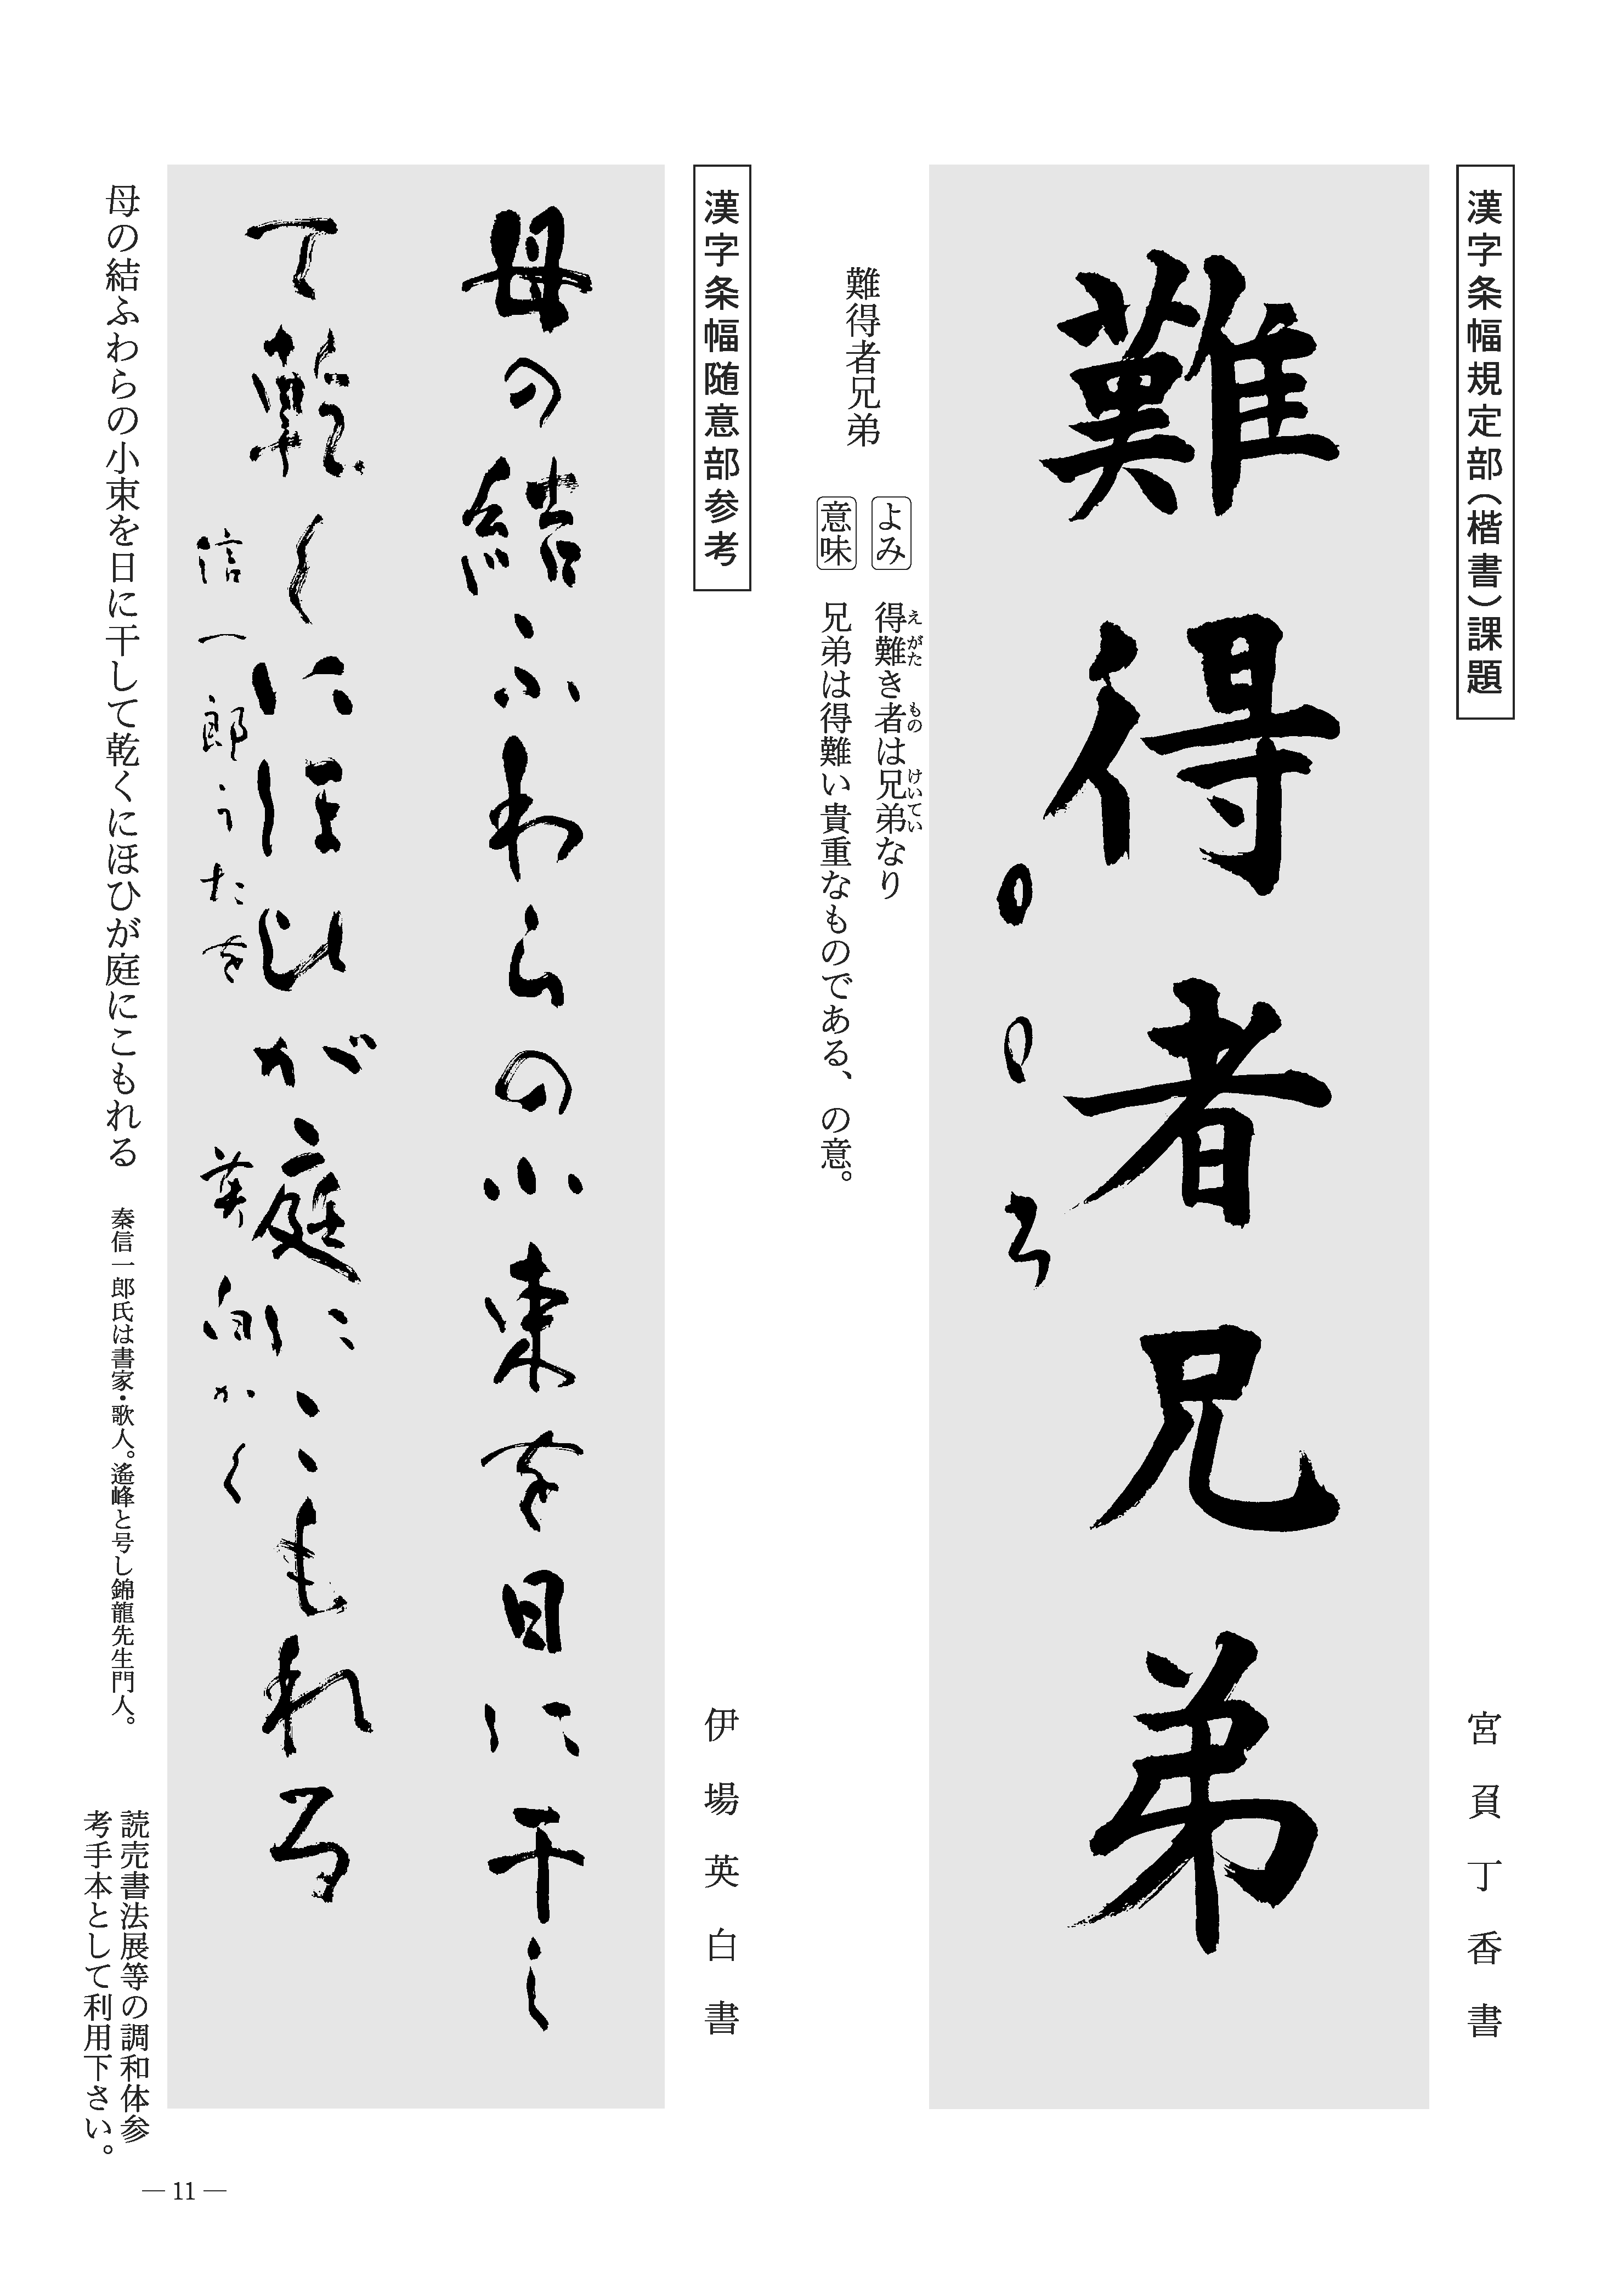 漢字条幅規定部（楷書）課題
宮負丁香書
難得者兄弟
〇〇ろ
難得者兄弟
よみ 得難き者は兄弟なり
えがた もの けいてい
意味 兄弟は得難い貴重なものである、の意。
漢字条幅随意部参考
伊場英白書
母の結ふわらの小束を日に干し
て乾くにほひが庭にこもれる
信一郎うたを 英白かく
母の結ふわらの小束を日に干して乾くにほひが庭にこもれる
秦信一郎氏は書家・歌人。遙峰と号し錦龍先生門人。
読売書法展等の調和体参
考手本として利用下さい。
— 11 —